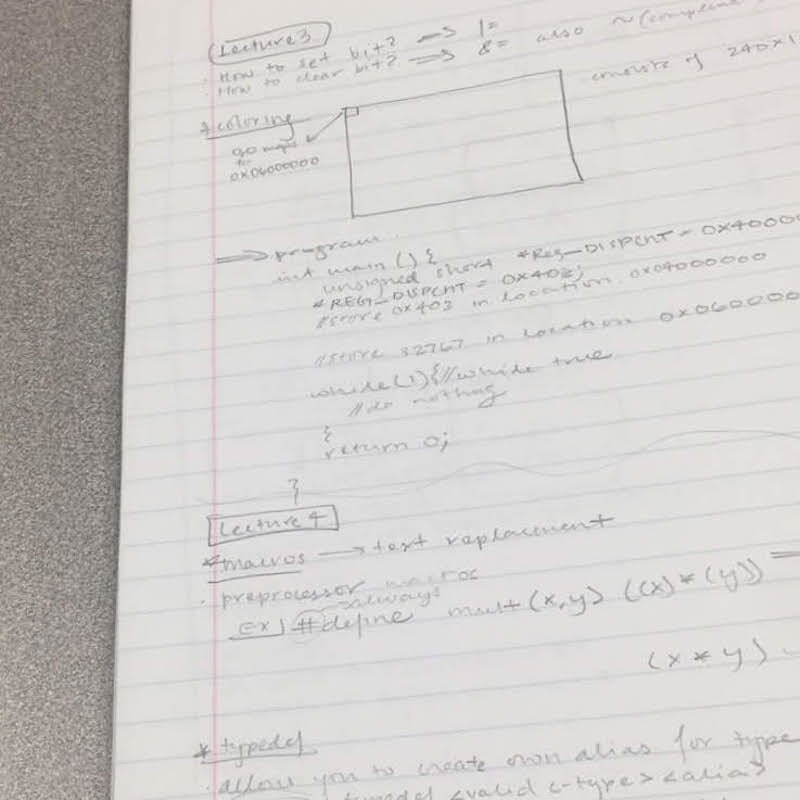 Lecture 3
. How to set bit? => |=
. How to clear bit? => &= also ~(complement
consists of 240x1
*coloring
go maps
to
0x06000000
=> program
int main () {
unsigned short *REG_DISPCNT = 0x40000
*REG_DISPCNT = 0x403;
//store 0x403 in location 0x04000000
//store 32767 in location 0x060000
while(1){//while true
//do nothing
}
return 0;
}
Lecture 4
*macros → text replacement
. preprocessor macros
→always
Ex] #define mult(x,y) ((x)*(y))
(x*y)
* typedef
. allows you to create own alias for type
typedef <valid c-type> <alias>